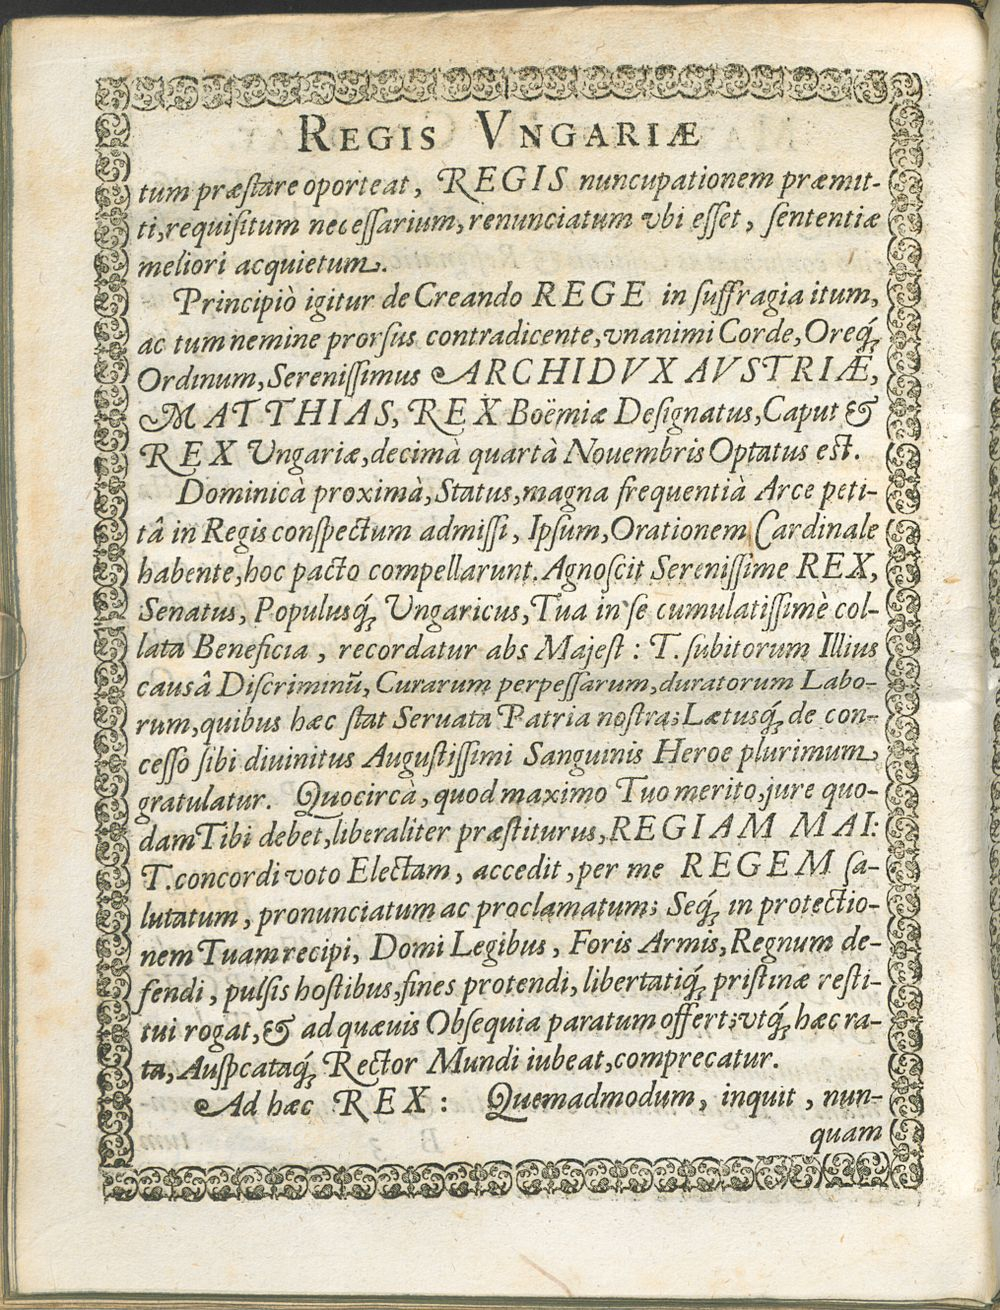 REGIS VNGARIÆ
tum præſtare oporteat, REGIS nuncupationem præmit-
ti, requiſitum neceſſarium, renunciatum vbi eſſet, ſententiæ
meliori acquietum.
Principiò igitur de Creando REGE in ſuffragia itum,
ac tum nemine prorſus contradicente, vnanimi Corde, Oreq́;
Ordinum, Sereniſſimus ARCHIDVX AVSTRIÆ,
MATTHIAS, REX Boëmiæ Deſignatus, Caput &
REX Vngariæ, decimà quartà Nouembris Optatus eſt.
Dominicà proximà, Status, magna frequentià Arce peti-
tâ in Regis conſpectum admiſſi, Ipſum, Orationem Cardinale
habente, hoc pacto compellarunt. Agnoſcit Sereniſſime REX,
Senatus, Populusq́; Vngaricus, Tua in ſe cumulatiſſimè col-
lata Beneficia, recordatur abs Majeſt: T. ſubitorum Illius
causâ Diſcriminū, Curarum perpeſſarum, duratorum Labo-
rum, quibus hæc ſtat Seruata Patria noſtra; Lætusq́; de con-
ceſſo ſibi diuinitus Auguſtiſſimi Sanguinis Heroe plurimum
gratulatur. Quocircà, quod maximo Tuo merito, jure quo-
dam Tibi debet, liberaliter præſtiturus, REGIAM MAI:
T. concordi voto Electam, accedit, per me REGEM ſa-
lutatum, pronunciatum ac proclamatum; Seq́; in protectio-
nem Tuam recipi, Domi Legibus, Foris Armis, Regnum de-
fendi, pulſis hoſtibus, fines protendi, libertatiq́; priſtinæ reſti-
tui rogat, & ad quæuis Obſequia paratum offert; vtq́; hæc ra-
ta, Auſpcataq́; Rector Mundi iubeat, comprecatur.
Ad hæc REX: Quemadmodum, inquit, nun-
quam